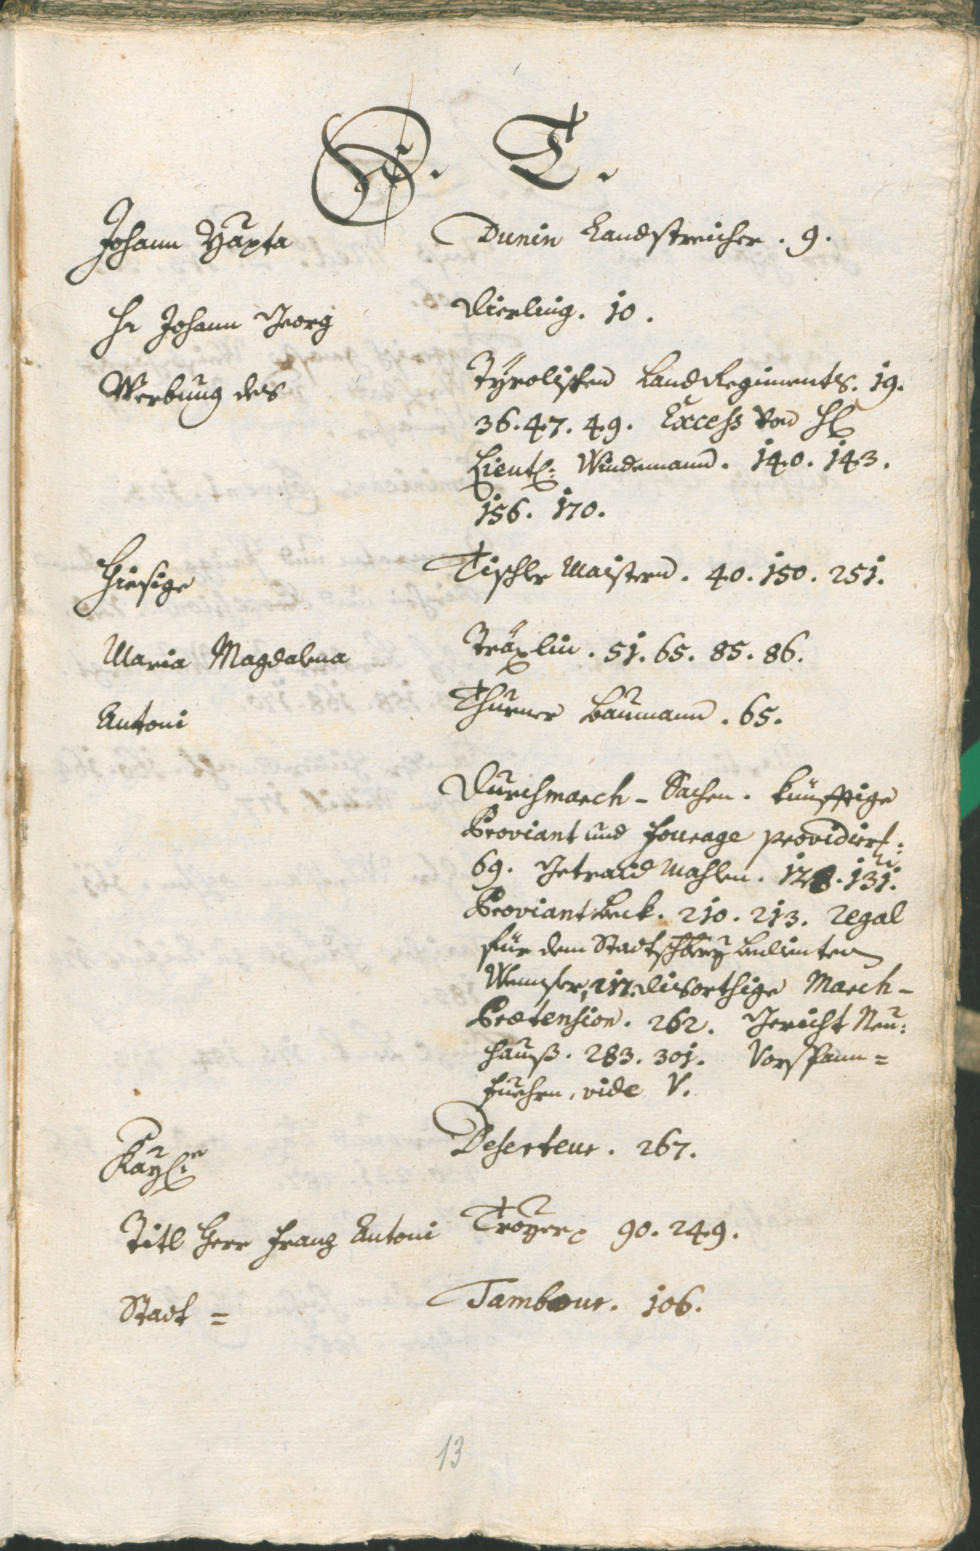 D. T.
Johann Dunin Landstreicher. 9.
Hr Johann Georg Dierling. 10.
Werbung des Tÿrolischen Land Regiments. 19.
36. 47. 49. Excess von H
Lieut: Windemann. 140. 143.
156. 170.
Hiesige Tischler Maistern. 40. 150. 251.
Maria Magdalena Träxlin. 51. 65. 85. 86.
Antoni Thurner Baumann. 65.
Durchmarch-Sachen. künfftige
Proviant und Fourage providiert:
69. Getraid Mahlen. 128. 131.
Proviant Beck. 210. 213. Regal
für dem Stadtschbr
217. disorthige March-
Prætension. 262. Gericht Neu:
hauß. 283. 301. Vorspann=
Fuehrn, vide V.
Kayl Deserteur. 267.
Titl Herr Franz Antoni Troyer 90. 249.
Stadt= Tambour. 106.
13